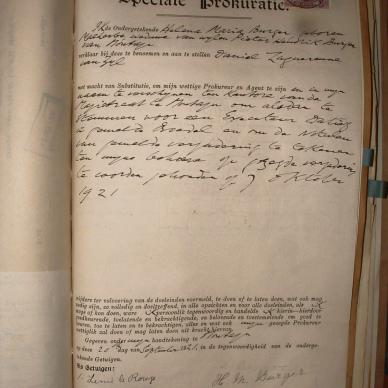 Speciale Prokuratie.
Ik de Ondergetekende Helena Maria Burger geboren
Malherbe weduwe van wijlen Pieter Hendrik Burger
van
verklaar bij deze te benoemen en aan te stellen Daniel
van Zyl
met macht van Substitutie, om mijn wettige Prokureur en Agent te zijn en in mijn
naam te verschijnen ten kantore van de
Magistraat te om aldaar te
stemmen voor een Executeur Datief
in gemelde Boedel en om de Notulen
van gemelde vergadering te tekenen
ten mijne behoeve op gezegde vergadering
te worden gehouden op 7 Oktober
1921
wijders ter volvoering van de doeleinden voormeld, te doen of te laten doen, wat ook mag
nodig zijn, zo volledig en doeltreffend, in alle opzichten en voor alle doeleinden, als ik
moge of kon doen, ware ik persoonlik tegenwoordig en handelde ik hierin—hierdoor
goedkeurende, toelatende en bekrachtigende, en belovende en toestemmende om goed te
keuren, toe te laten en te bekrachtigen, alles en wat ook mijn gezegde Prokureur
wettiglik zal doen of mag laten doen uit kracht hiervan.
Gegeven onder mijn handtekening te
op deze 20 dag van September 1921, in de tegenwoordigheid van de onderge-
tekende Getuigen.
Als Getuigen:
1. le Roux
H M Burger